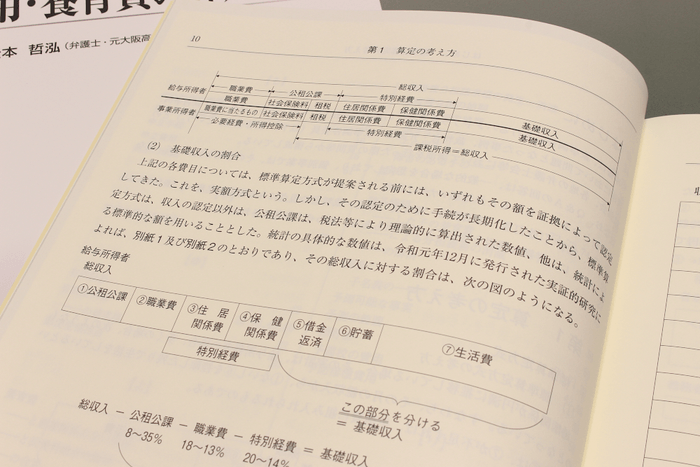 用・養育費
本 哲泓(弁護士・元大阪高
10
第1 算定の考え方
総収入
給与所得者 職業費 公租公課 特別経費
職業費 社会保険料 租税 住居関係費 保健関係費 基礎収入
事業所得者 職業費に当たるもの 社会保険料 租税 住居関係費 保健関係費 基礎収入
必要経費・所得控除 特別経費
課税所得=総収入
(2) 基礎収入の割合
上記の各費目については、標準算定方式が提案される前には、いずれもその額を証拠によって認定
してきた。これを、実額方式という。しかし、その認定のために手続が長期化したことから、標準算
定方式は、収入の認定以外は、公租公課は、税法等により理論的に算出された数値、他は、統計によ
る標準的な額を用いることとした。統計の具体的な数値は、令和元年12月に発行された実証的研究に
よれば、別紙1及び別紙2のとおりであり、その総収入に対する割合は、次の図のようになる。
給与所得者
総収入
①公租公課 ②職業費 ③住居関係費 ④保健関係費 ⑤借金返済 ⑥貯蓄 ⑦生活費
特別経費
この部分を分ける
=基礎収入
総収入 − 公租公課 − 職業費 − 特別経費 = 基礎収入
8~35% 18~13% 20~14%